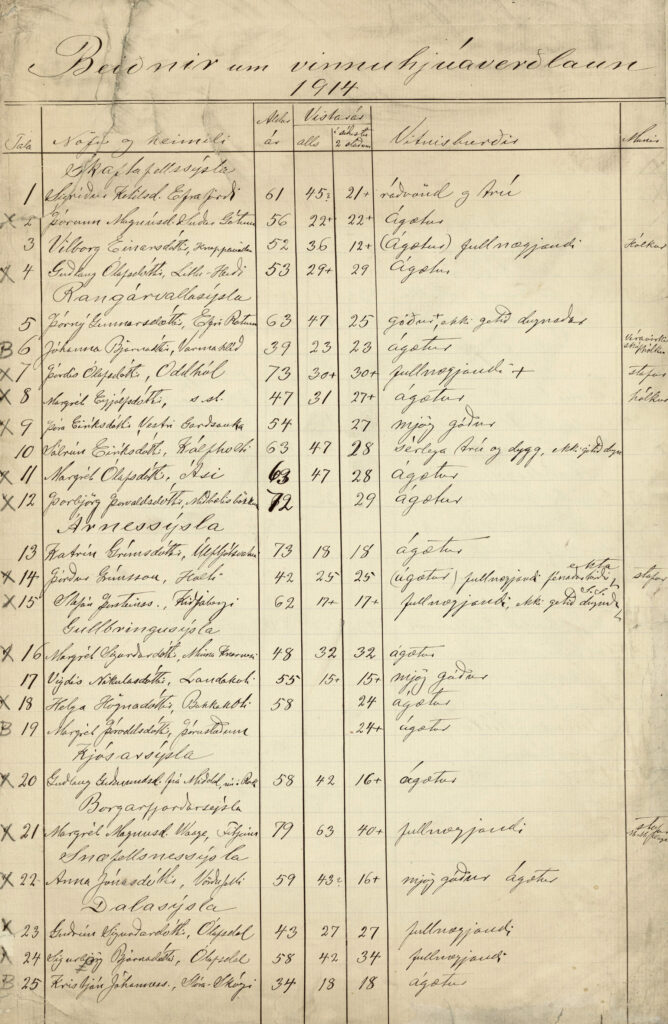 Beiðnir um vinnuhjúaverðlaun
1914
Tala Nöfn og heimili Aldur ár Vistarár alls í síðustu 2 stöðum Vitnisburðir Munir
Skaptafellssýsla
1 Sigríður Ketilsd. 61 45 21+ ráðvönd og trú
x 2 Þórunn Magnúsd. 56 22+ 22+ Ágætur
3 Vilborg Einarsdóttir, 52 36 12+ (Ágætur) fullnægjandi Hólkur
x 4 Guðlaug Ólafsdóttir, Litlu-Heiði 53 29+ 29 Ágætur
Rangárvallasýsla
5 Þórný Gunnarsdóttir, Efri 63 47 25 góður, ekki getið
B 6 Jóhanna Bjarnadóttir, Varmahlíð 39 23 23 ágætur
x 7 Þórdís Ólafsdóttir, Oddhól 73 30+ 30+ fullnægjandi + stafur
x 8 Margrét Eyjólfsdóttir, s.st. 47 31 27+ ágætur hólkur
x 9 Eiríksdóttir, Vestri Garðsauka 54 27 mjög góður
10 Eiríksdóttir, Kálfholti 63 47 28 sérlega trú og dygg, ekki getið
x 11 Margrét Ólafsdóttir, Ási 63 47 28 ágætur
x 12 Þorbjörg Þorvaldsdóttir, 72 29 ágætur
Árnessýsla
13 Katrín Grímsdóttir, Úlfljótsvatni 73 18 18 ágætur
x 14 Þórður Grímsson, Holti 42 25 25 (ágætur) fullnægjandi stafur
x 15 Stefán Þorsteinss., 62 17+ 17+ fullnægjandi, ekki getið
Gullbringusýsla
x 16 Margrét Sigurðardóttir, Minna 48 32 32 ágætur
17 Vigdís Nikulásdóttir, Landakoti 55 15+ 15+ mjög góður
x 18 Helga Högnadóttir, Bakkakoti 58 24 ágætur
B 19 Margrét Þóroddsdóttir, Þórustöðum 24+ ágætur
Kjósarsýsla
x 20 Guðlaug Guðmundsd. frá Miðdal, 58 42 16+ ágætur
Borgarfjarðarsýsla
x 21 Margrét Magnúsd. Waage, Fitjum 79 63 40+ fullnægjandi
Snæfellsnessýsla
x 22 Anna Jónasdóttir, 59 43 16+ mjög góður ágætur
Dalasýsla
x 23 Guðrún Sigurðardóttir, Ólafsdal 43 27 27 fullnægjandi
x 24 Sigurbjörg Bjarnadóttir, Ólafsdal 58 42 34 fullnægjandi
B 25 Kristján Jóhanness., Stóra-Skógi 34 18 18 ágætur